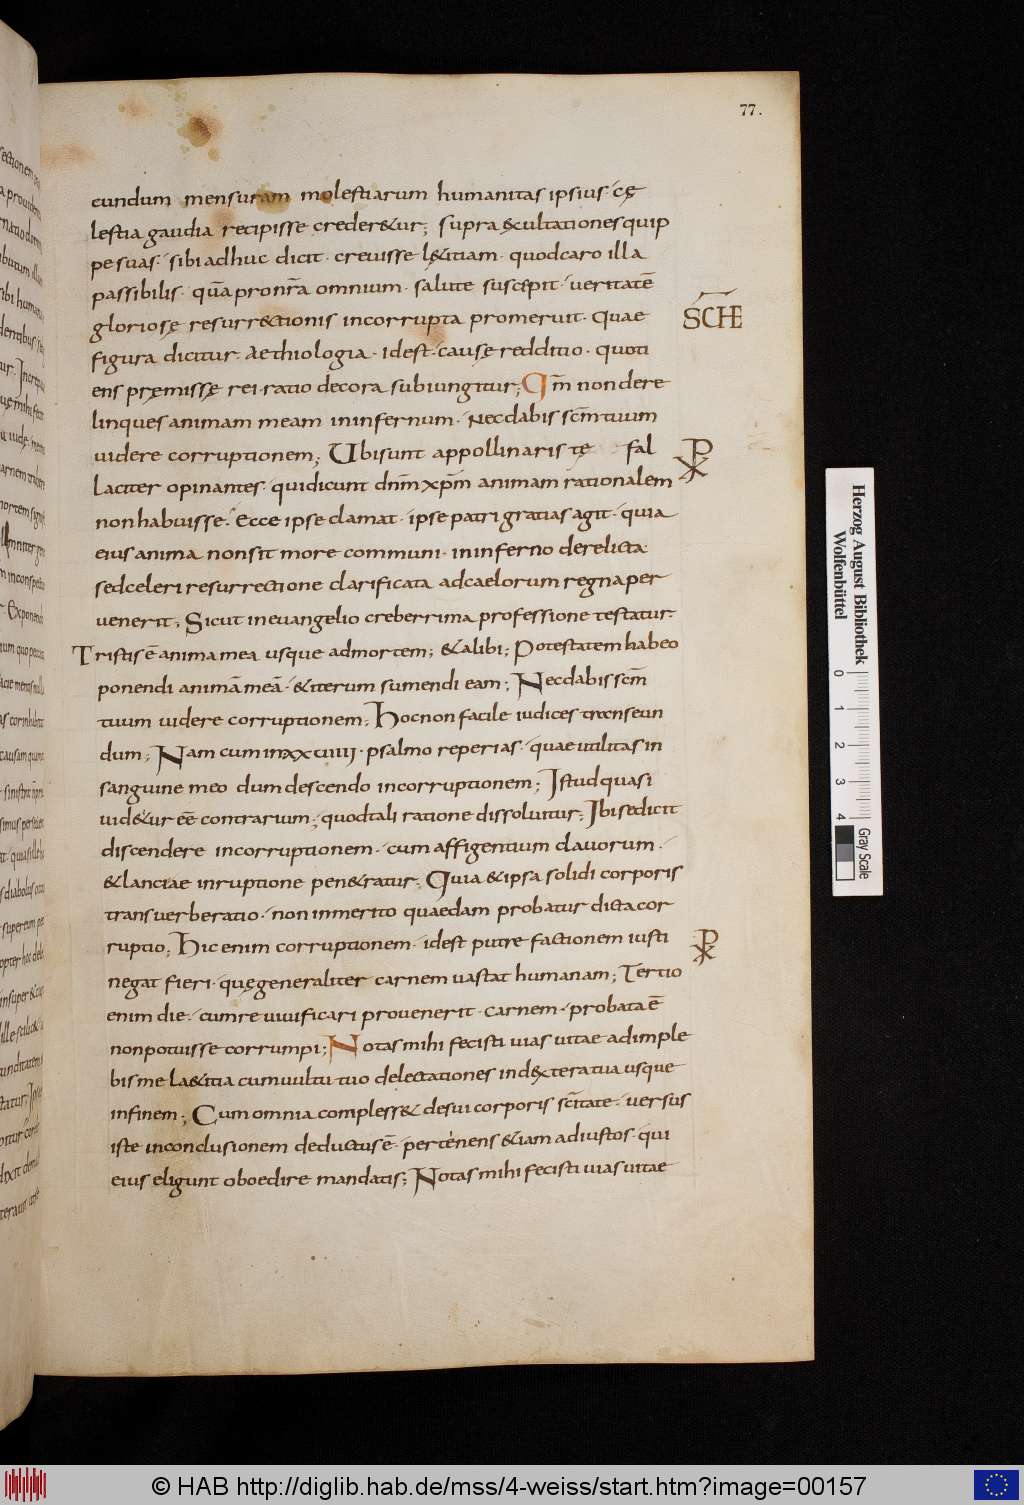 77.
cundum mensuram molestiarum humanitas ipsius · cę
lestia gaudia recipisse creder&ur; supra exultationes quip
pe suas · sibi adhuc dicit · creuisse l&itiam · quod caro illa
passibilis · quā pro nr̄a omnium · salute suscepit · ueritatē
gloriosę resurrectionis incorrupta promeruit · Quae
SCHE
figura dicitur · Aethiologia · idest · causę redditio · quoti
ens pręmissę rei · ratio decora subiungitur; Qm̄ non dere
linques animam meam in infernum · Nec dabis scm̄ tuum
uidere corruptionem; Ubi sunt appollinaristę fal
laciter opinantes · qui dicunt dnm̄ xpm̄ animam rationalem
non habuisse · Ecce ipse clamat · ipse patri gratias agit · quia
eius anima non sit more communi · in inferno derelicta
sed celeri resurrectione clarificata ad caelorum regna per
uenerit; Sicut in euangelio creberrima professione testatur ·
Tristis ē anima mea usque ad mortem; & alibi; Potestatem habeo
ponendi animā meā · & iterum sumendi eam; Nec dabis scm̄
tuum uidere corruptionem; Hoc non facile iudices transeun
dum; Nam cum in xxuiiii · psalmo reperias · quae utilitas in
sanguine meo dum descendo in corruptionem; Istud quasi
uid&ur eē contrarium; quod tali ratione dissoluitur; Ibi se dicit
discendere in corruptionem · cum affigentium clauorum ·
& lanciae inruptione pen&ratur; Quia & ipsa solidi corporis
transuerberatio · non inmerito quaedam probatur dicta cor
ruptio; Hic enim corruptionem · idest putrefactionem iusti
negat fieri · quę generaliter carnem uastat humanam; Tertio
enim die · cum reuiuificari prouenerit · carnem · probata ē
non potuisse corrumpi; Notas mihi fecisti uias uitae adimple
bis me la&itia cum uultu tuo delectationes in dextera tua usque
in finem; Cum omnia compless& de sui corporis scītate · uersus
iste in conclusionem deductus ē · pertenens &iam ad iustos · qui
eius eligunt oboedire mandatis; Notas mihi fecisti uias uitae
Herzog August Bibliothek
Wolfenbüttel
0 1 2 3 4
Gray Scale
© HAB http://diglib.hab.de/mss/4-weiss/start.htm?image=00157